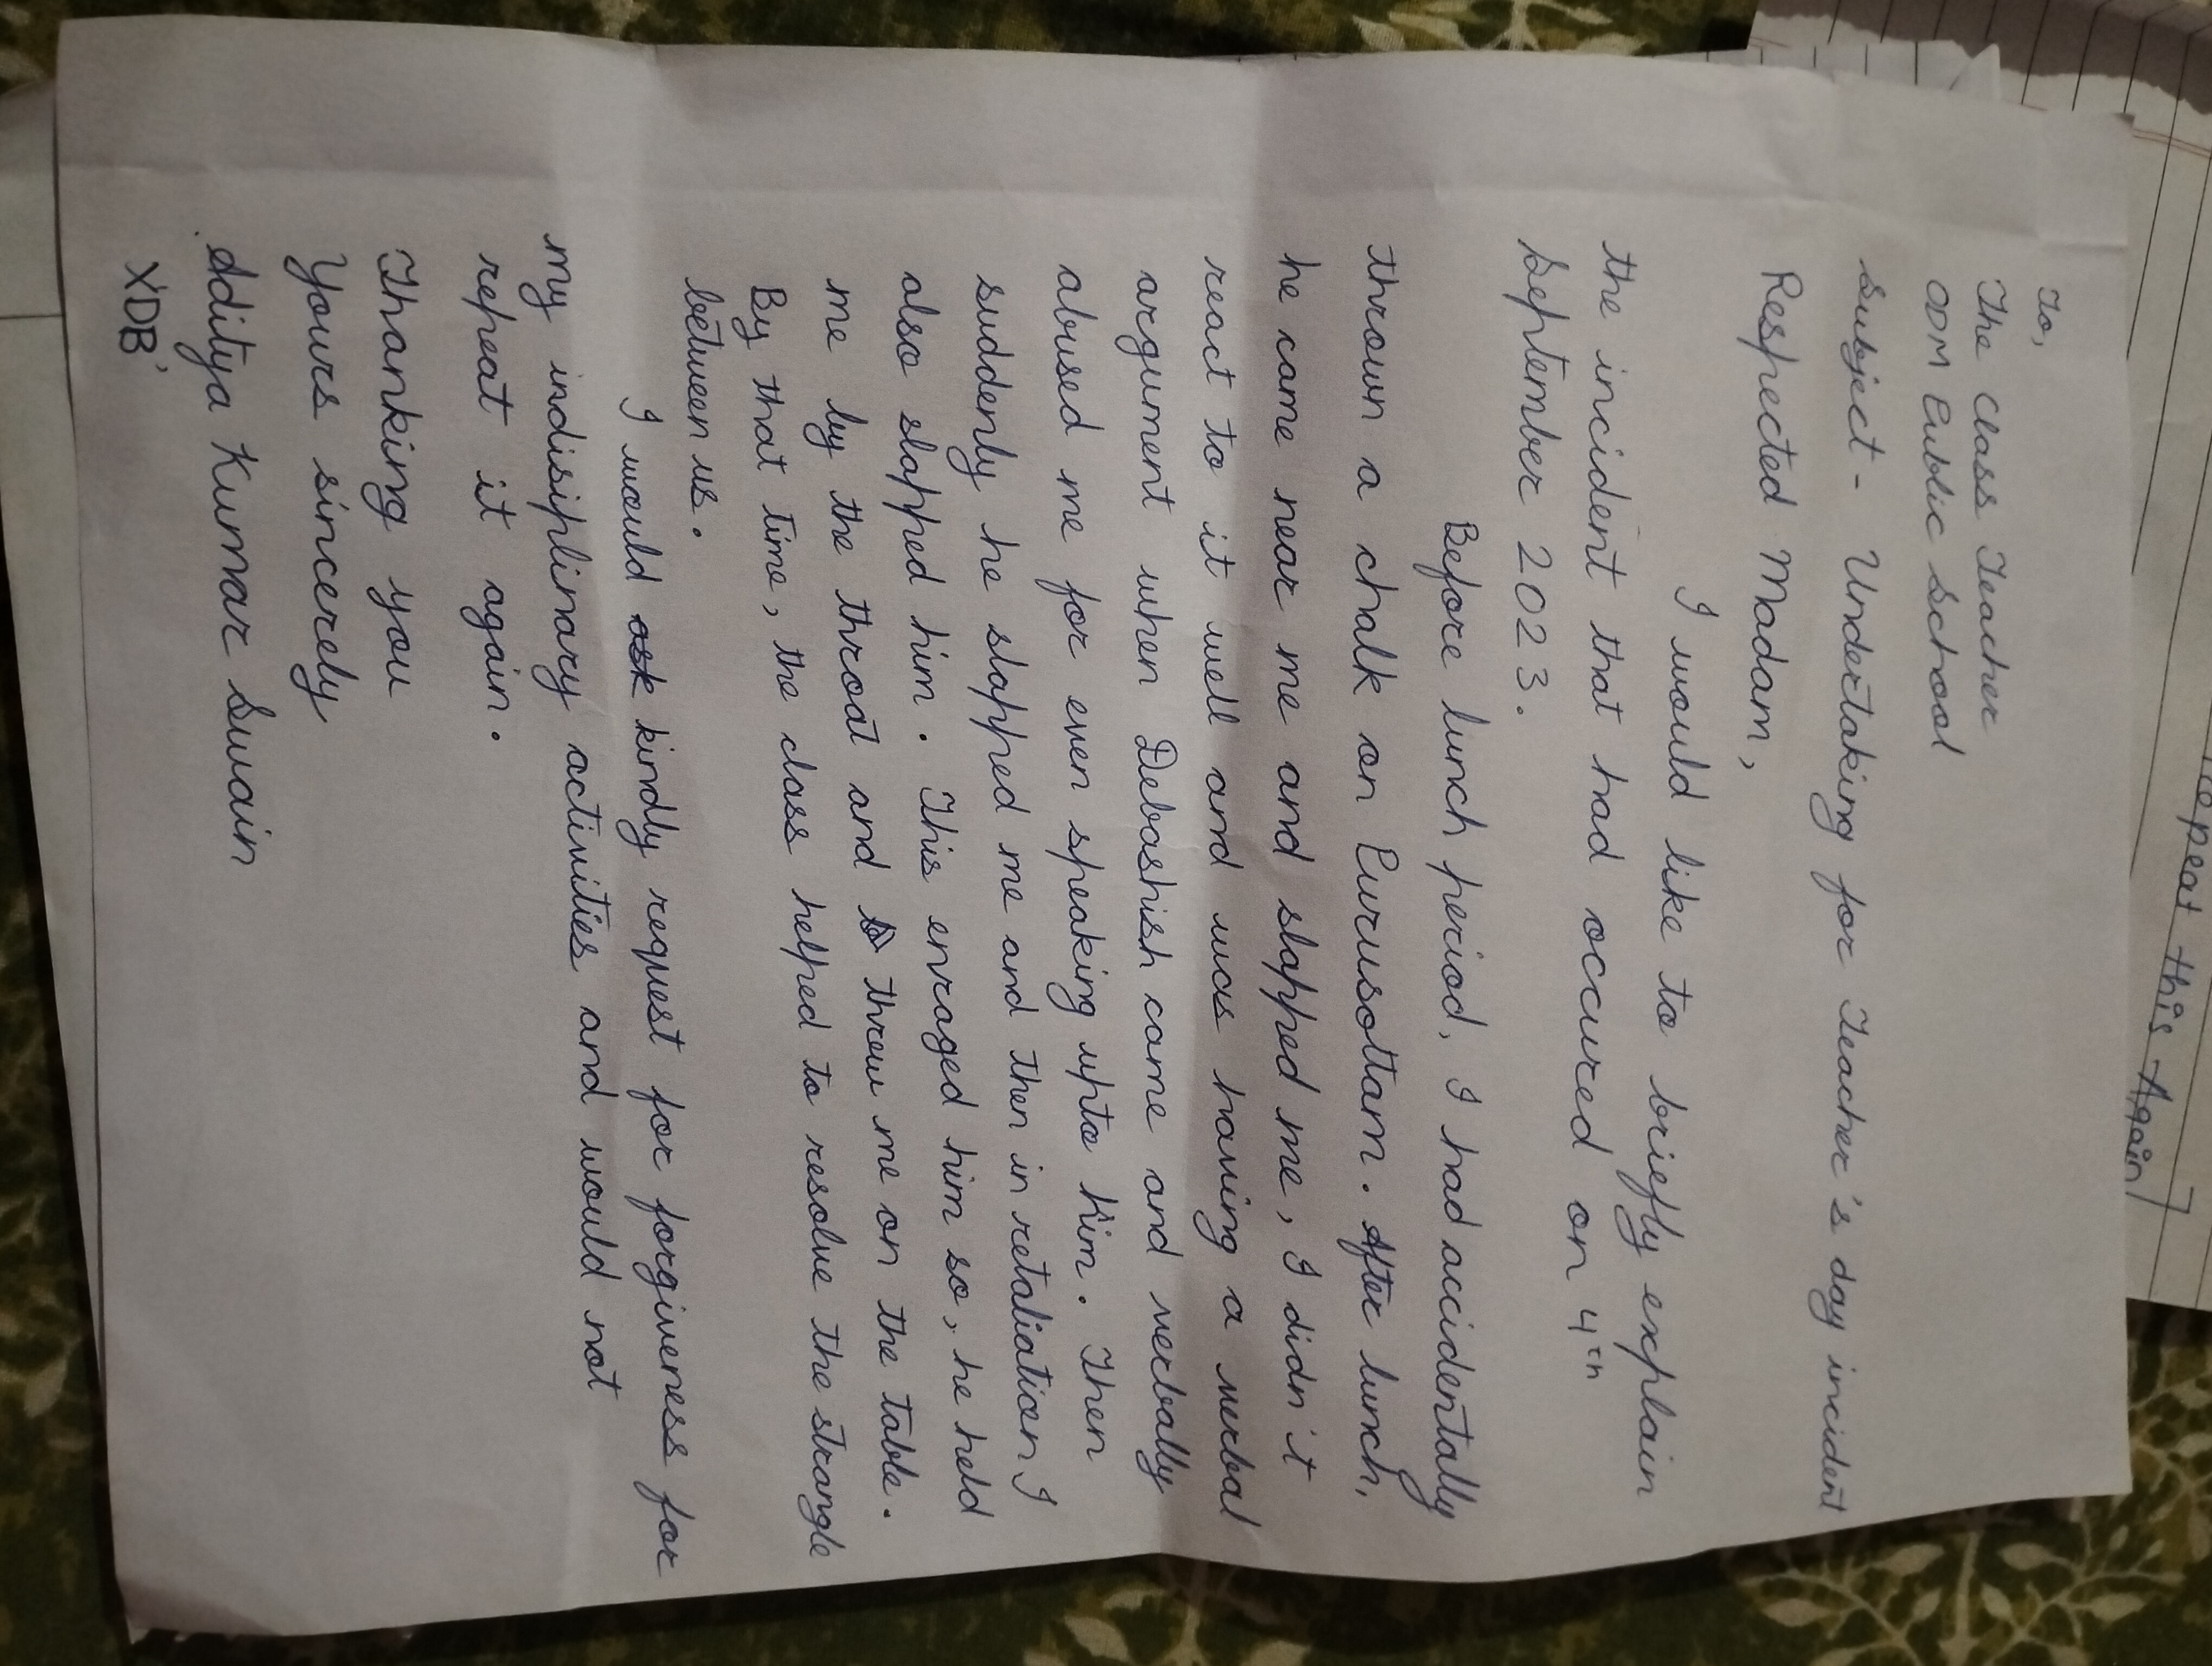 To,
The Class Teacher
ODM Public School
Subject - Undertaking for Teacher's day incident
Respected Madam,
I would like to briefly explain
the incident that had occured on 4th
September 2023.
Before lunch period, I had accidentally
thrown a chalk on Purusottam. After lunch,
he came near me and slapped me, I didn't
react to it well and was having a verbal
argument when Debashish came and verbally
abused me for even speaking upto him. Then
suddenly he slapped me and then in retaliation I
also slapped him. This enraged him so, he held
me by the throat and threw me on the table.
By that time, the class helped to resolve the strangle
between us.
I would ask kindly request for forgiveness for
my indisiplinary activities and would not
repeat it again.
Thanking you
Yours sincerely
Aditya Kumar Swain
X'DB'
repeat this Again